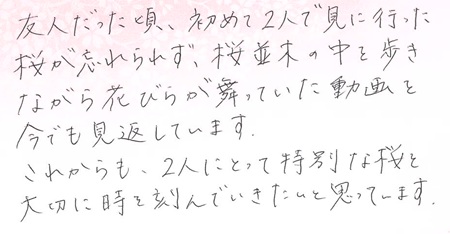 友人だった頃、初めて2人で見に行った
桜が忘れられず、桜並木の中を歩き
ながら花びらが舞っていた動画を
今でも見返しています.
これからも、2人にとって特別な桜を
大切に時を刻んでいきたいと思っています.